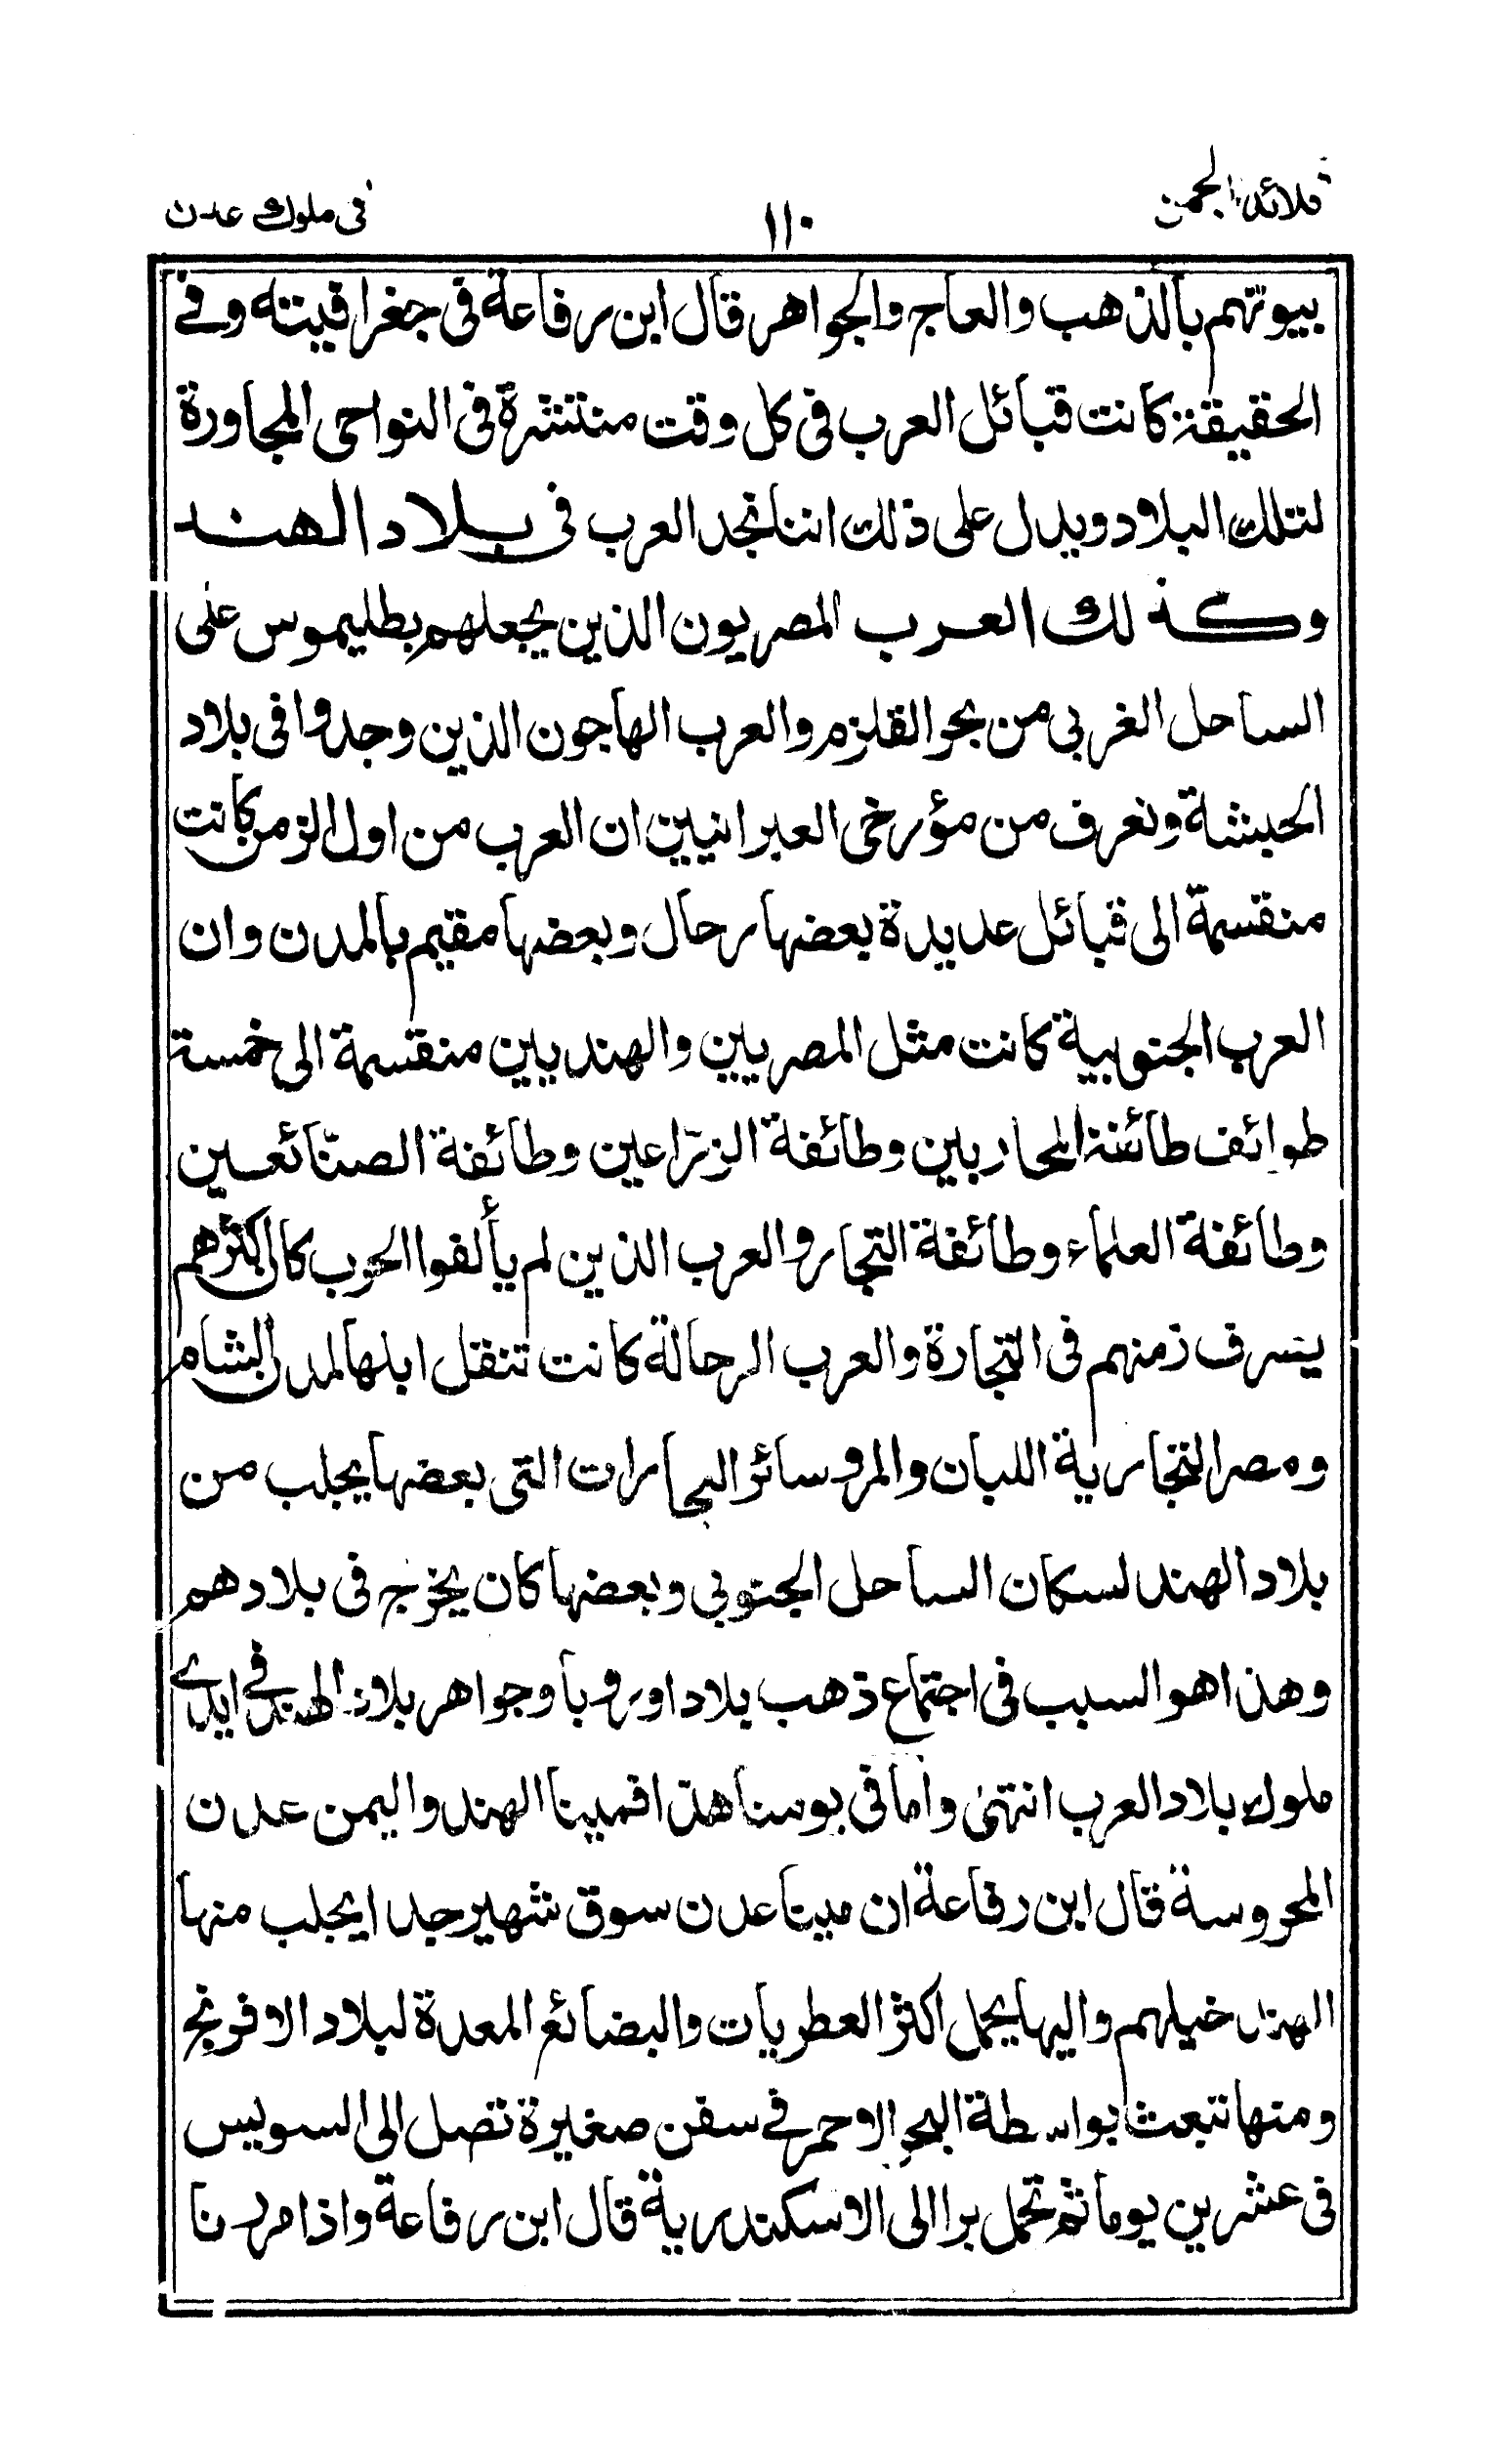 قلائد الجمن ١١٠ فى ملوك عدن
بيوتهم بالذهب والعاج والجواهر قال ابن رفاعة فى جغرافيته وفے
الحقيقة كانت قبائل العرب فى كل وقت منتشرة فى النواحى المجاورة
لتلك البلاد ويدل على ذلك اننا نجد العرب فى بلاد الهند
وكذلك العرب المصريون الذين يجعلهم بطليموس على
الساحل الغربى من بحر القلزم والعرب الهاجون الذين وجدوا فى بلاد
الحبشة ونعرف من مؤرخى العبرانيين ان العرب من اول الزمن كانت
منقسمة الى قبائل عديدة بعضها رحال وبعضها مقيم بالمدن وان
العرب الجنوبية كانت مثل المصريين والهنديين منقسمة الى خمسة
طوائف طائفة المحاربين وطائفة الزرّاعين وطائفة الصنّائعين
وطائفة العلماء وطائفة التجار والعرب الذين لم يألفوا الحرب كان اكثرهم
يسرف زمنهم فى التجارة والعرب الرحالة كانت تنقل ابلها لمدن الشام
ومصر التجارية اللبان والمر وسائر البهارات التى بعضها يجلب من
بلاد الهند لسكان الساحل الجنوبى وبعضها كان يخرج فى بلادهم
وهذا هو السبب فى اجتماع ذهب بلاد اوروبا وجواهر بلاد الهند فے ايدے
ملوك بلاد العرب انتهى واما فى يومنا هذا فمينا الهند واليمن عدن
المحروسة قال ابن رفاعة ان مينا عدن سوق شهير جدا يجلب منها
الهند خيلهم واليها يحمل اكثر العطريات والبضائع المعدة لبلاد الافرنج
ومنها تبعث بواسطة البحر الاحمر فے سفن صغيرة تصل الى السويس
فى عشرين يوما ثم تحمل برا الى الاسكندرية قال ابن رفاعة واذا مردنا